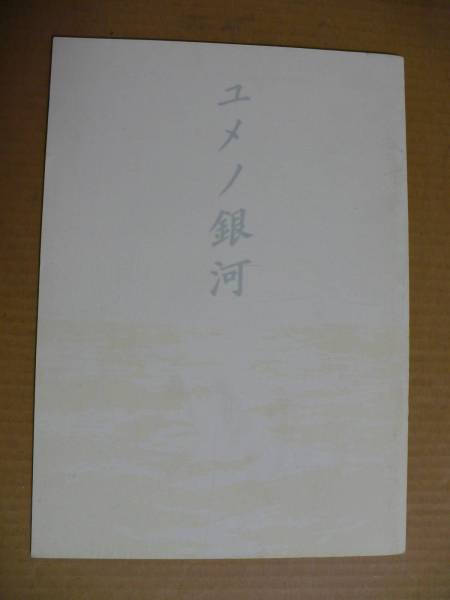 ユメノ銀河